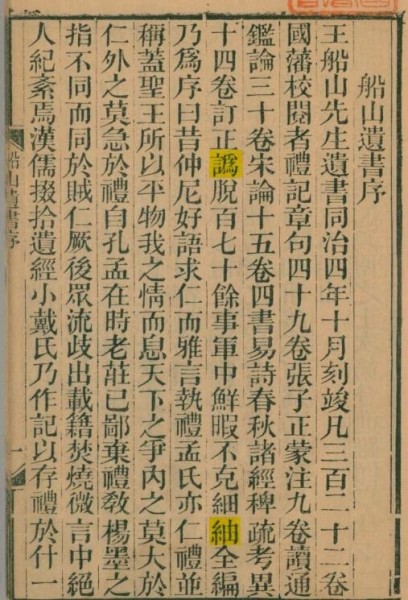 船山遺書序
王船山先生遺書同治四年十月刻竣凡三百二十二卷
國藩校閱者禮記章句四十九卷張子正蒙注九卷讀通
鑑論三十卷宋論十五卷四書易詩春秋諸經稗疏考異
十四卷訂正譌脫百七十餘事軍中鮮暇不克細紬全編
乃爲序曰昔仲尼好語求仁而雅言執禮孟氏亦仁禮並
稱蓋聖王所以平物我之情而息天下之爭內之莫大於
仁外之莫急於禮自孔孟在時老莊已鄙棄禮敎楊墨之
指不同而同於賊仁厥後眾流歧出載籍焚燒微言中絕
人紀紊焉漢儒掇拾遺經小戴氏乃作記以存禮於什一
船山遺書序
一